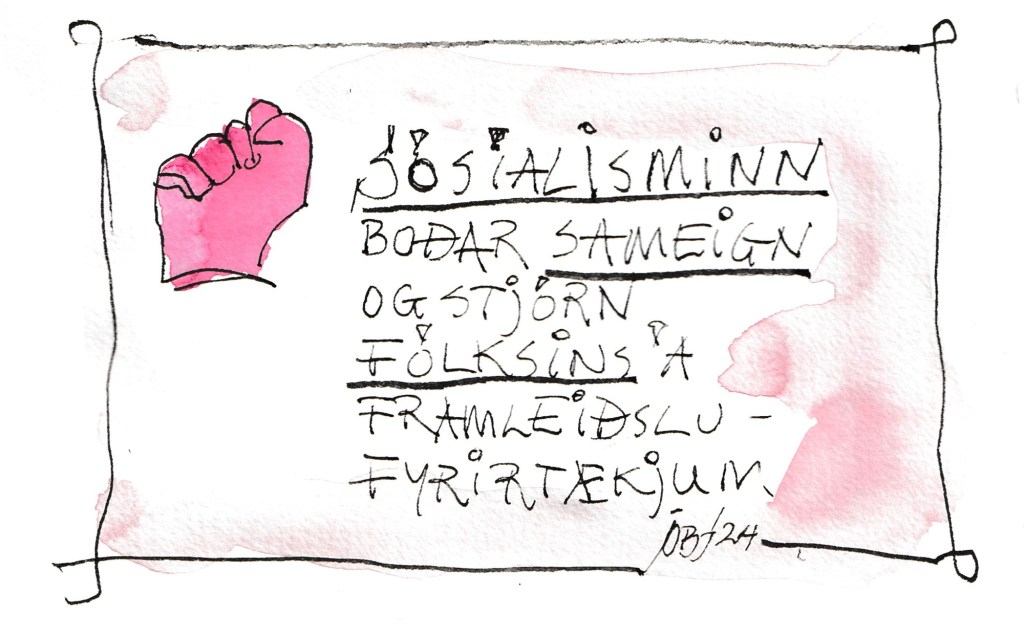 SÓSÍALISMINN
BOÐAR SAMEIGN
OG STJÓRN
FÓLKSINS Á
FRAMLEIÐSLU-
FYRIRTÆKJUM.
ÖBJ 24